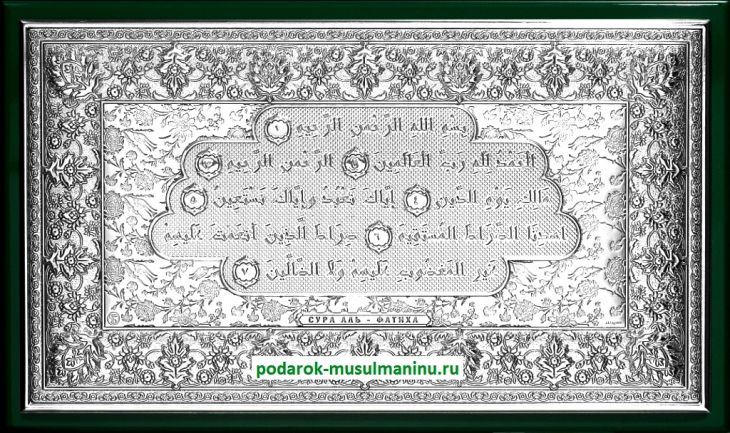 بِسْمِ اللهِ الرَّحْمٰنِ الرَّحِيمِ ١
الْحَمْدُ لِلهِ رَبِّ الْعَالَمِينَ ٢ الرَّحْمٰنِ الرَّحِيمِ ٣
مَالِكِ يَوْمِ الدِّينِ ٤ إِيَّاكَ نَعْبُدُ وَإِيَّاكَ نَسْتَعِينُ ٥
اهْدِنَا الصِّرَاطَ الْمُسْتَقِيمَ ٦ صِرَاطَ الَّذِينَ أَنْعَمْتَ عَلَيْهِمْ
غَيْرِ الْمَغْضُوبِ عَلَيْهِمْ وَلَا الضَّالِّينَ ٧
СУРА АЛЬ - ФАТИХА
podarok-musulmaninu.ru